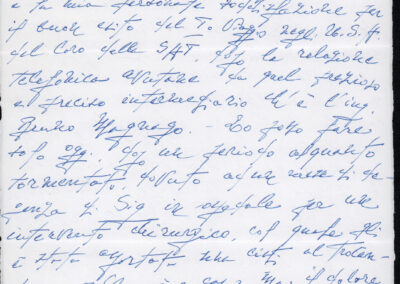 e la mia personale soddisfazione per
il buon esito del I° Viaggio negli U.S.A.
del Coro della SAT, dopo la relazione
telefonica avutane da quel prezioso
e preciso intermediario ch'è l'ing.
Benno Magnago. - Lo posso fare
solo oggi, dopo un periodo alquanto
tormentato, dovuto ad un mese di de-
genza di Sig in ospedale per un
intervento chirurgico, col quale gli
è stata asportata una cisti al
il dolore